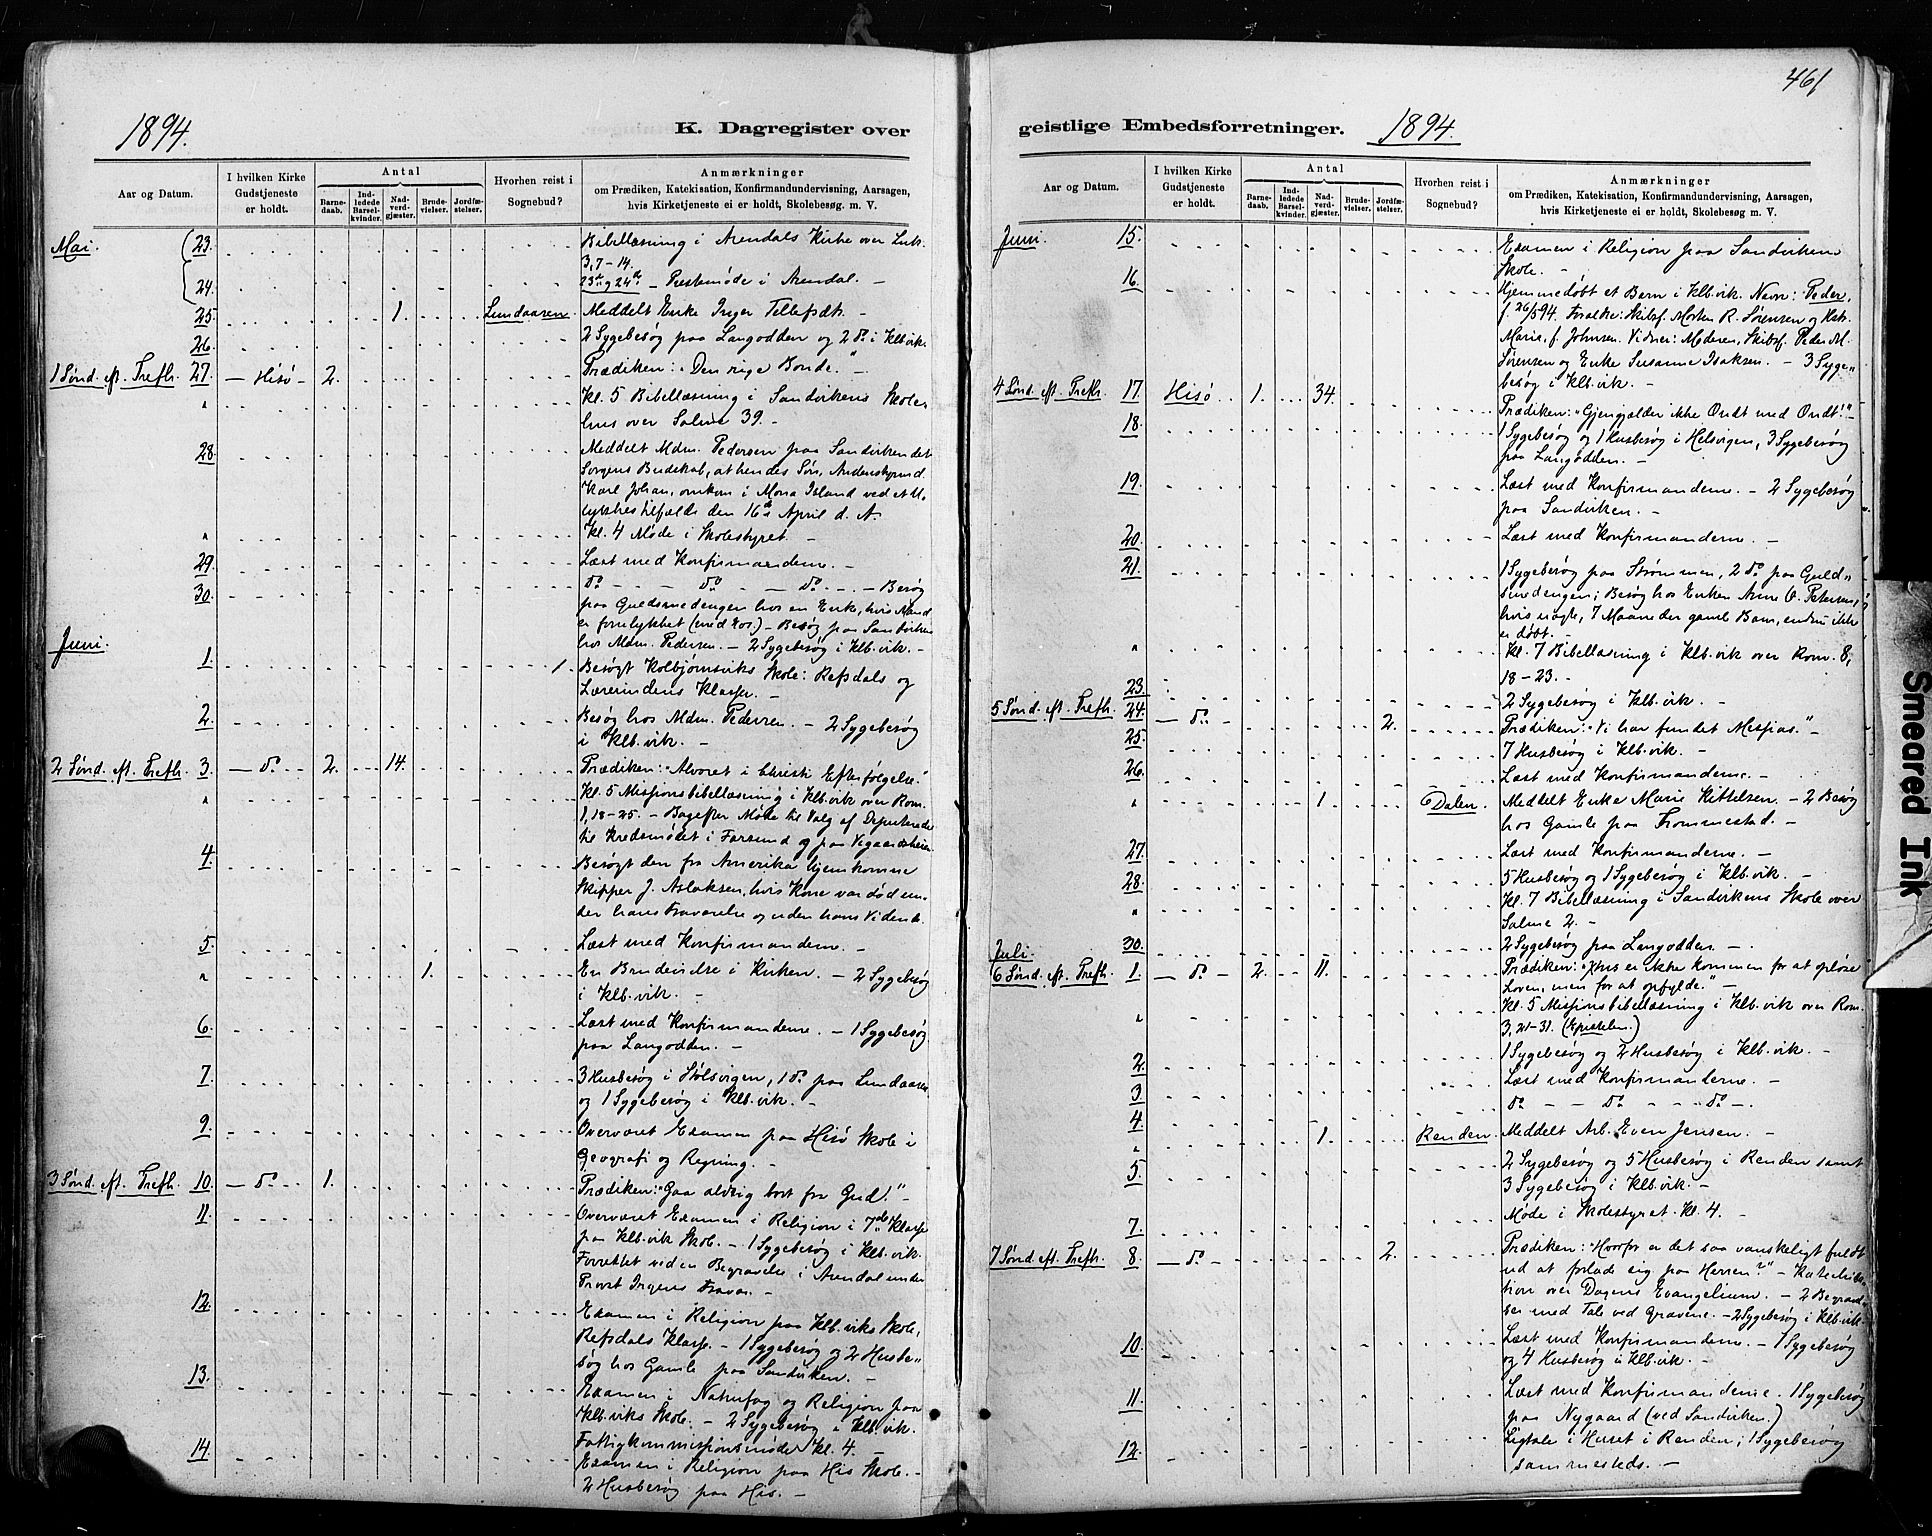 461
1894.
K. Dagregister over
geistlige Embedsforretninger.
1894.
Aar og Datum.
I hvilken Kirke Gudstjeneste er holdt.
Antal
Barnedaab.
Indledede Barselkvinder.
Nadvergjæster.
Brudevielser.
Jordfæstelser.
Hvorhen reist i Sognebud?
Anmærkninger
om Prædiken, Katekisation, Konfirmandundervisning, Aarsagen,
hvis Kirketjeneste ei er holdt, Skolebesøg m. V.
Mai. 23. Bibellæsning i Arendals Kirke over Luk.
3, 7-14.
24. 23de og 24de Præstemøde i Arendal. -
25. 1. Lundaasen. Meddelt Enke Inger Tellefsdtr. -
26. 2 Sygebesøg paa Langodden og 2 do i Klb.vik.
1 Sønd. eft. Trefh. 27. - Hisö - 2. Prædiken: "Den rige Bonde." -
" Kl. 5 Bibellæsning i Sandvikens Skole-
hus over Salme 39. -
28. Meddelt Mdm. Pedersen paa Sandviken det
Sorgens Budskab, at hendes Søn, Andenstyrmd.
Karl Johan, omkom i Mona Island ved et U-
lykkestilfælde den 16de April d. A.
" Kl. 4 Møde i Skolestyret. -
29. Læst med Konfirmanderne. -
30. do - - do - do - - Besøg
paa Guldsmedengen hos en Enke, hvis Mand
er forulykket (med Kos.) - Besøg paa Sandviken
hos Mdm. Pedersen. - 2 Sygebesøg i Klb.vik. -
Juni. 1. 1. Besøgt Kolbjørnsviks Skole: Refsdals og
Lærerindens Klasser. -
2. Besøg hos Mdm. Pedersen. - 2 Sygebesøg
i Klb.vik. -
2 Sønd. eft. Trefh. 3. - do - 2. 14. Prædiken: "Alvoret i Christi Efterfølgelse."
" Kl. 5 Missionsbibellæsning i Klb.vik over Rom.
1, 18-25. - Bagefter Møde til Valg af Deputerede
til Kredsmødet i Farsund og paa Vegaardsheien.
4. Besøgt den fra Amerika hjemkomne
Skipper J. Aslaksen, hvis Kone var død un-
der hans Fraværelse og uden hans Vidende.
5. Læst med Konfirmanderne. -
" 1. En Brudevielse i Kirken. - 2 Sygebesøg
i Klb.vik. -
6. Læst med Konfirmanderne. - 1 Sygebesøg
paa Langodden. -
7. 3 Husbesøg i Hølsvigen, 1 do paa Lundaasen
og 1 Sygebesøg i Klb.vik. -
9. Overværet Examen paa Hisö Skole i
Geografi og Regning. -
3 Sønd. eft. Trefh. 10. - do - 1. Prædiken: "Gaa aldrig bort fra Gud!" -
11. Overværet Examen i Religion i 7de Klasse
paa Klb.vik Skole. - 1 Sygebesøg i Klb.vik.
Forrettet ved en Begravelse i Arendal under
Provst Irgens Fravær. -
12. Examen i Religion paa Klb.viks Skole,
Refsdals Klasse. - 1 Sygebesøg og 2 Husbe-
søg hos Gamle paa Sandviken. -
13. Examen i Naturfag og Religion paa
Klb.viks Skole. - 2 Sygebesøg i Klb.vik.
Fattigkommissionsmøde kl. 4. -
14. Examen i Religion paa His Skole. -
2 Husbesøg paa His. -
Aar og Datum.
I hvilken Kirke Gudstjeneste er holdt.
Antal
Barnedaab.
Indledede Barselkvinder.
Nadvergjæster.
Brudevielser.
Jordfæstelser.
Hvorhen reist i Sognebud?
Anmærkninger
om Prædiken, Katekisation, Konfirmandundervisning, Aarsagen,
hvis Kirketjeneste ei er holdt, Skolebesøg m. V.
Juni. 15. Examen i Religion paa Sandvikens
Skole. -
16. Hjemmedøbt et Barn i Klb.vik. Navn: Peder,
f. 26/5 94. Forældre: Skibsf. Morten R. Sørensen og Hstr.
Marie, f. Johnsen. Vidner: Moderen, Skibsf. Peder M.
Sørensen og Enke Susanne Isaksen. - 3 Syge-
besøg i Klb.vik. -
4 Sønd. eft. Trefh. 17. Hisö 1. 34. Prædiken: "Gjengjælder ikke Ondt med Ondt!" -
18. 1 Sygebesøg og 1 Husbesøg i Helsvigen, 3 Sygebesøg
paa Langodden. -
19. Læst med Konfirmanderne. - 2 Sygebesøg
paa Sandviken. -
20. Læst med Konfirmanderne. -
21. 1 Sygebesøg paa Strømmen, 2 do paa Guld-
smedengen; Besøg hos Enken Anne O. Petersen,
hvis uægte, 7 Maaneder gamle Barn, endnu ikke
er døbt. -
" Kl. 7 Bibellæsning i Klb.vik over Rom. 8,
18-23. -
23. 2 Sygebesøg i Klb.vik. -
5 Sønd. eft. Trefh. 24. - do - 2. Prædiken: "Vi har fundet Messias."
25. 7 Husbesøg i Klb.vik. -
26. Læst med Konfirmanderne. -
" 1. Dalen. Meddelt Enke Marie Kittelsen. - 2 Besøg
hos Gamle paa Trommestad. -
27. Læst med Konfirmanderne. -
28. 5 Husbesøg og 1 Sygebesøg i Klb.vik. -
" Kl. 7 Bibellæsning i Sandvikens Skole over
Salme 2. -
30. 2 Sygebesøg paa Langodden. -
Juli.
6 Sønd. eft. Trefh. 1. - do - 2. 11. Prædiken: "Xtus er ikke kommen for at opløse
Loven, men for at opfylde." -
" Kl. 5 Missionsbibellæsning i Klb.vik over Rom.
3, 21-31. (Epistelen.)
2. 1 Sygebesøg og 2 Husbesøg i Klb.vik. -
3. Læst med Konfirmanderne. -
4. do - - do - - - do -.
" 1. Renden. Meddelt Arb. Even Jensen. -
5. 2 Sygebesøg og 5 Husbesøg i Renden samt
3 Sygebesøg i Klb.vik. -
7. Møde i Skolestyret Kl. 4. -
7 Sønd. eft. Trefh. 8. - do - 2. Prædiken: "Hvorfor er det saa vanskeligt fuldt
ud at forlade sig paa Herren?" - Katekisa-
tion over Dagens Evangelium. - 2 Begravel-
ser med Tale ved Gravene. - 2 Sygebesøg i Klb.vik.
10. Læst med Konfirmanderne. - 1 Sygebesøg
og 4 Husbesøg i Klb.vik. -
11. Læst med Konfirmanderne. 1 Sygebesøg
paa Nygaard (ved Sandviken.)
12. Ligtale i Huset i Renden; 1 Sygebesøg
sammesteds. -
Smeared Ink